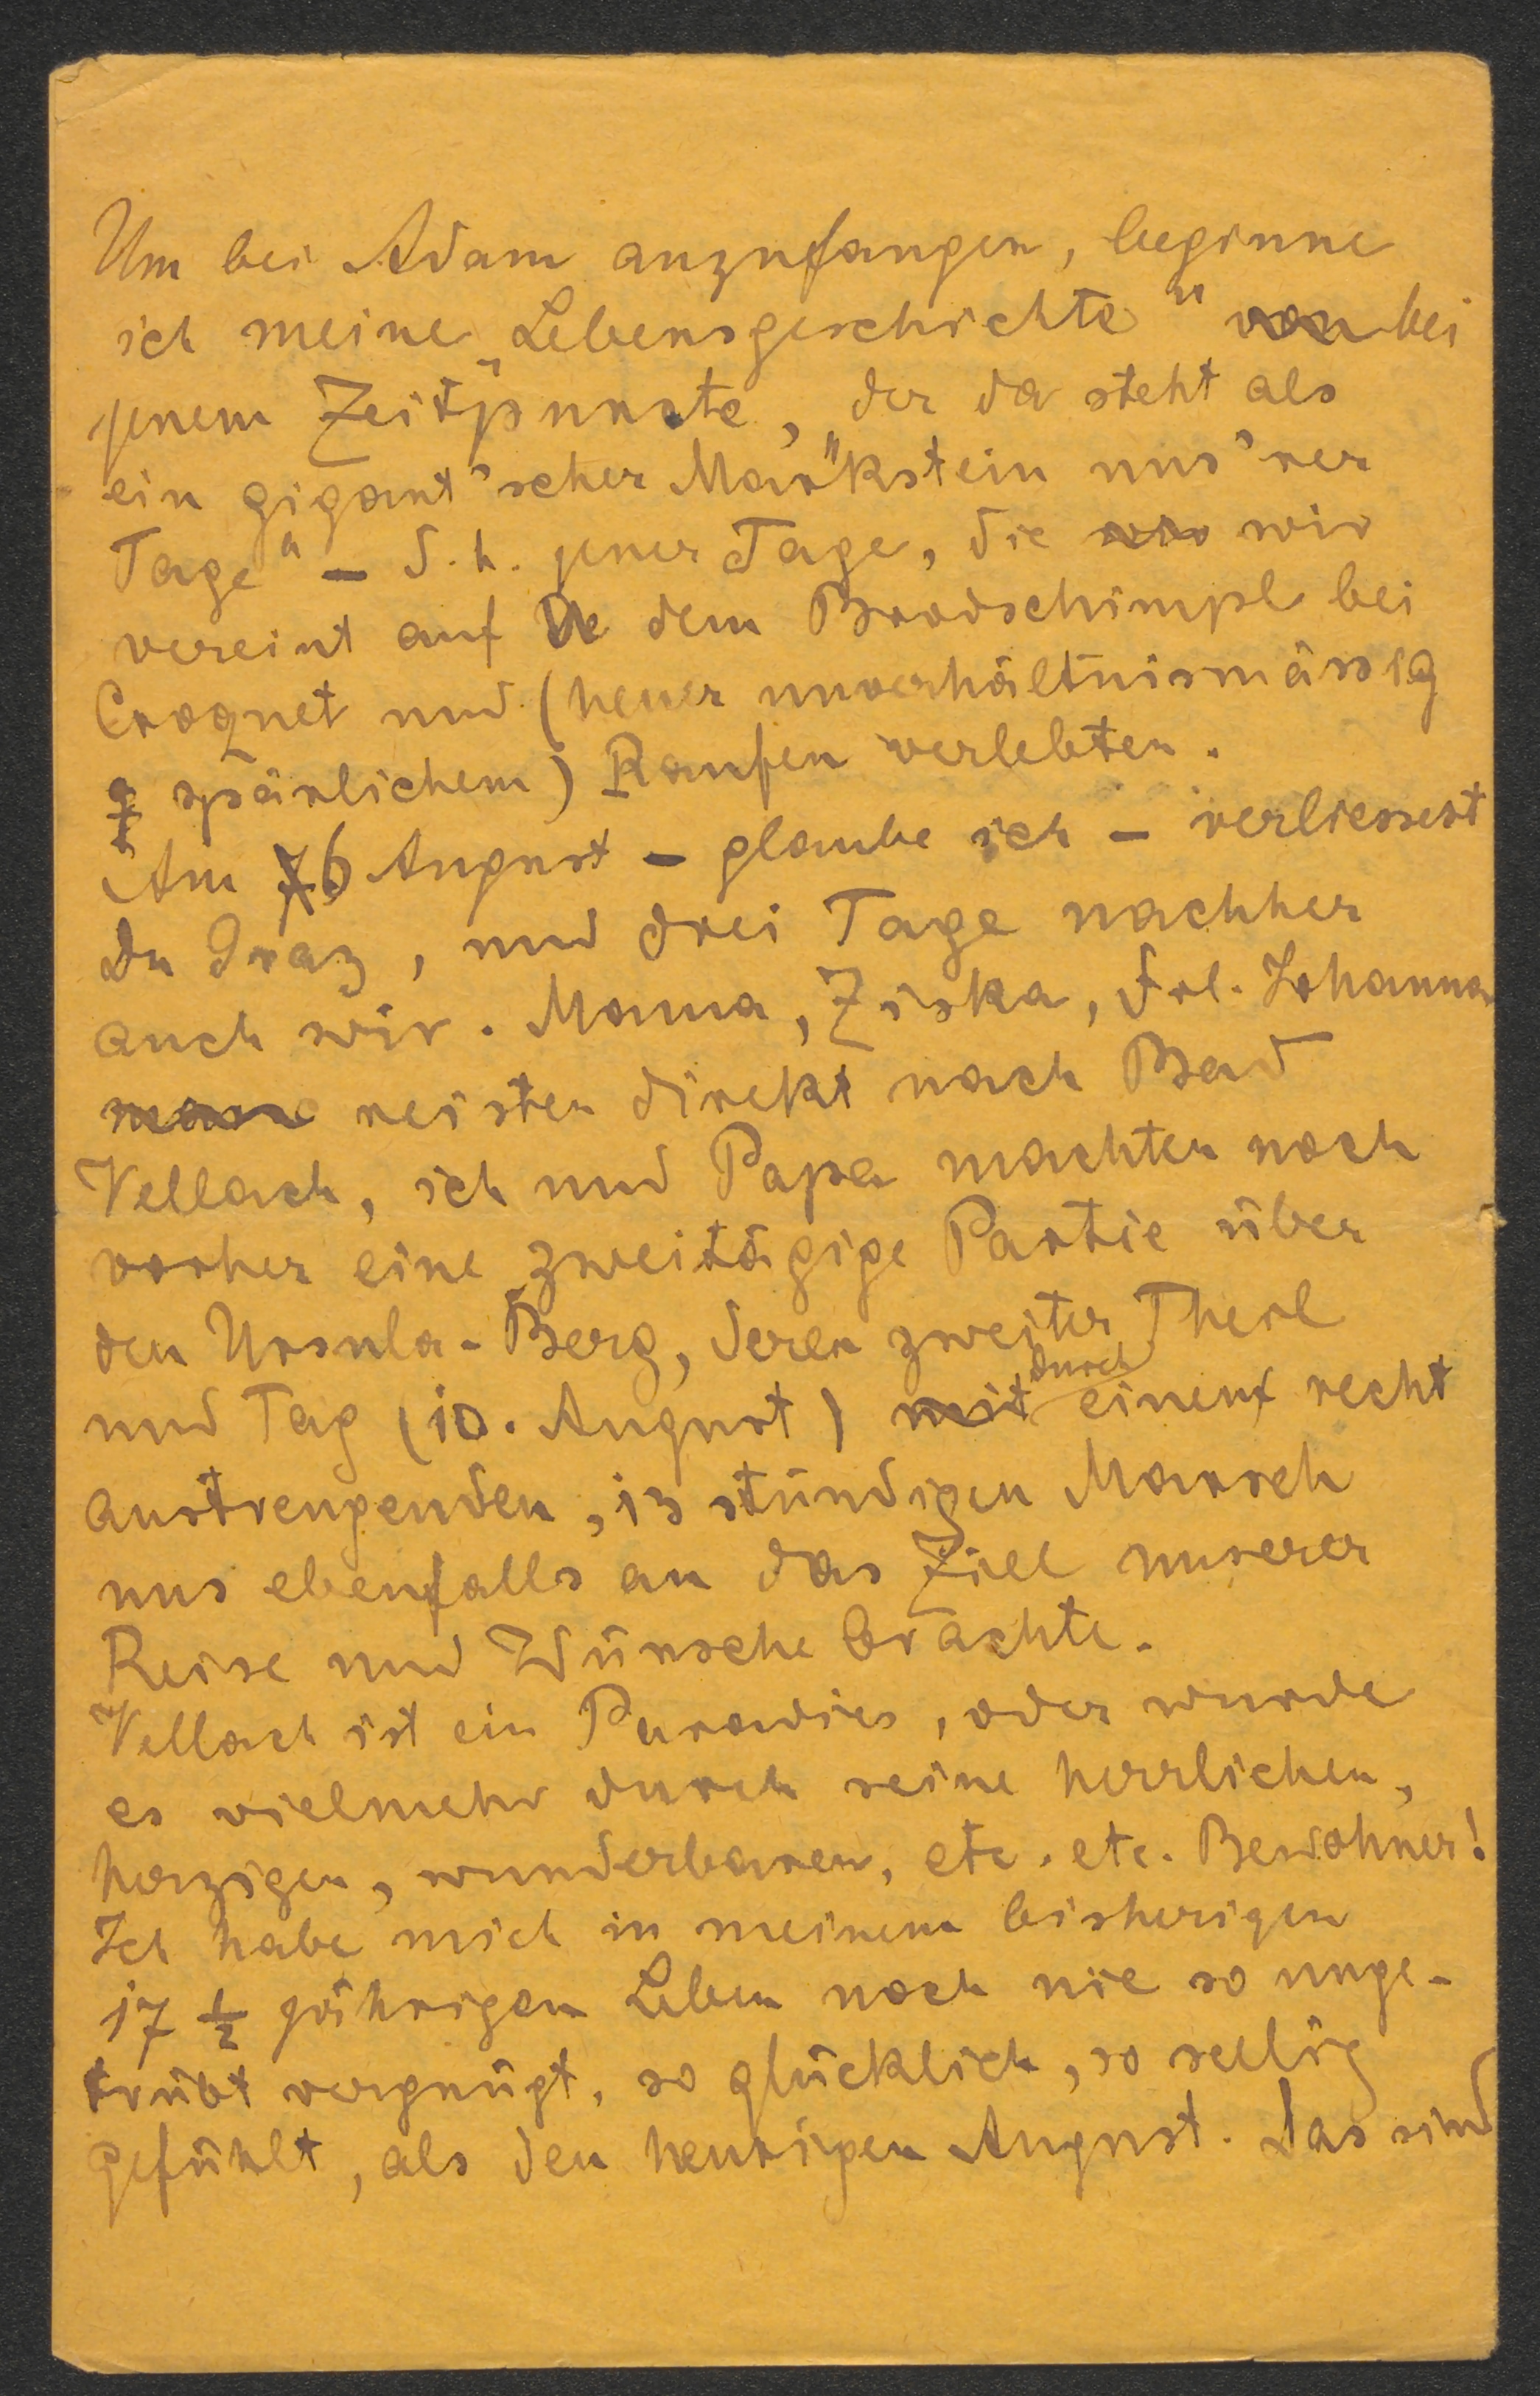 Um bei Adam anzufangen, beginne
ich meine „Lebensgeschichte" von bei
jenem Zeitpunkte, „der da steht als
ein gigant'scher Markstein uns'rer
Tage" – d. h. jener Tage, die wir
vereint auf dem Broodschimpl bei
Croquet und (heuer unverhältnismässig
spärlichem) Raufen verlebten.
Am 6 August – glaube ich – verliessest
Du Graz, und drei Tage nachher
auch wir. Mama, Ziska, Frl. Johanna
reisten direkt nach Bad
Vellach, ich und Papa machten noch
vorher eine zweitägige Partie über
den Ursula-Berg, deren zweiter Theil
und Tag (10. August) mit durch einen recht
anstrengenden, 13 stündigen Marsch
uns ebenfalls an das Ziel unserer
Reise und Wünsche brachte.
Vellach ist ein Paradies, oder wurde
es vielmehr durch seine herrlichen,
herzigen, wunderbaren, etc. etc. Bewohner!
Ich habe mich in meinem bisherigen
17 ½ jährigen Leben noch nie so unge-
trübt vergnügt, so glücklich, so seelig
gefühlt, als den heurigen August. Das sind